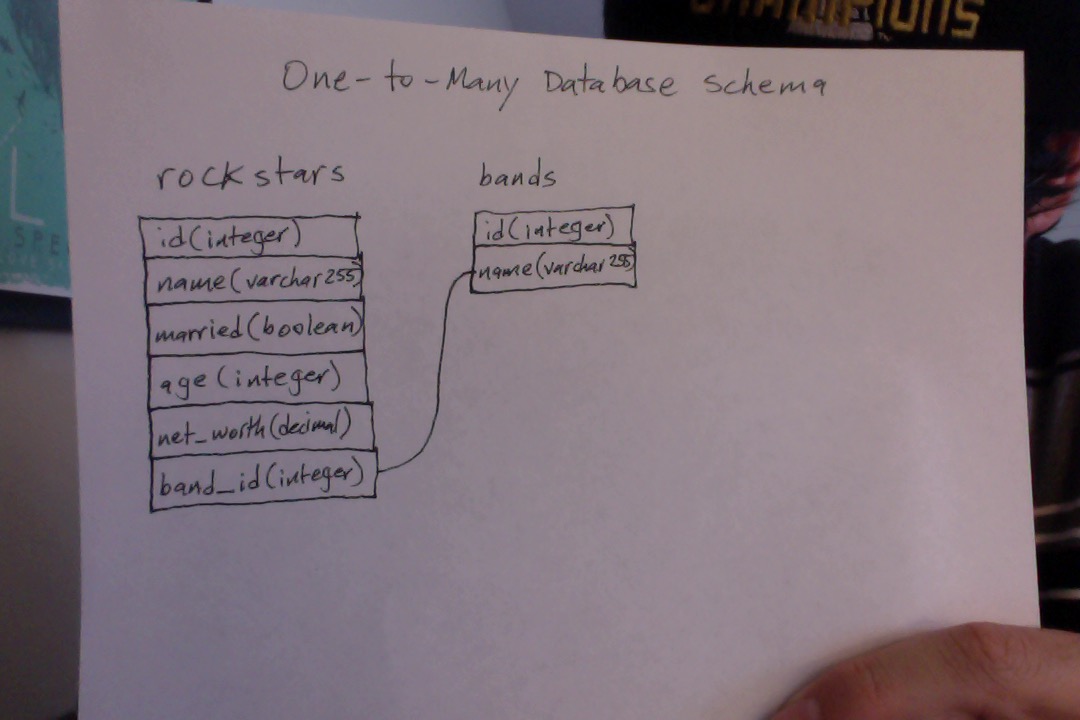 CHAMPIONS
One-to-Many Database Schema
rockstars
id(integer)
name(varchar255)
married(boolean)
age(integer)
net_worth(decimal)
band_id(integer)
bands
id(integer)
name(varchar255)
L
SPE